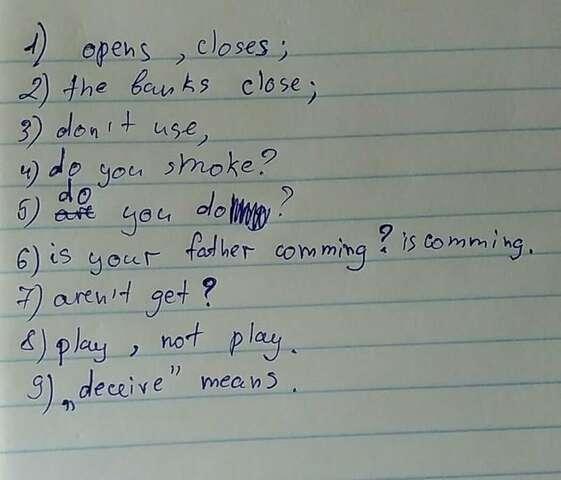 1) opens, closes;
2) the banks close;
3) don't use,
4) do you smoke?
5) do you do?
6) is your father comming? is comming.
7) aren't get?
8) play, not play.
9) „deceive” means.